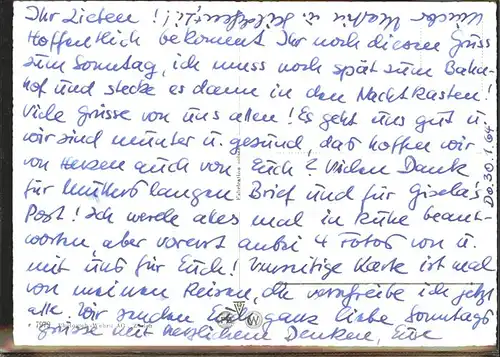 Ihr Lieben !
Hoffentlich bekommt Ihr noch diesen Gruss
zum Sonntag, ich muss noch spät zum Bahn-
hof und stecke es dann in den Nachtkasten!
Viele Grüsse von uns allen! Es geht uns gut u.
wir sind munter u. gesund, das hoffen wir
von Herzen auch von Euch? Vielen Dank
für Mutters langen Brief und für Giselas
Post! Ich werde alles mal in Ruhe beant-
worten, aber vorerst anbei 4 Fotos von u.
mit uns für Euch! Umseitige Karte ist mal
von meinen Reisen, die verschreibe ich jetzt
alle. Wir senden Euch ganz liebe Sonntags-
grüsse mit herzlichem Denken, Eure
Do. 30.1.64